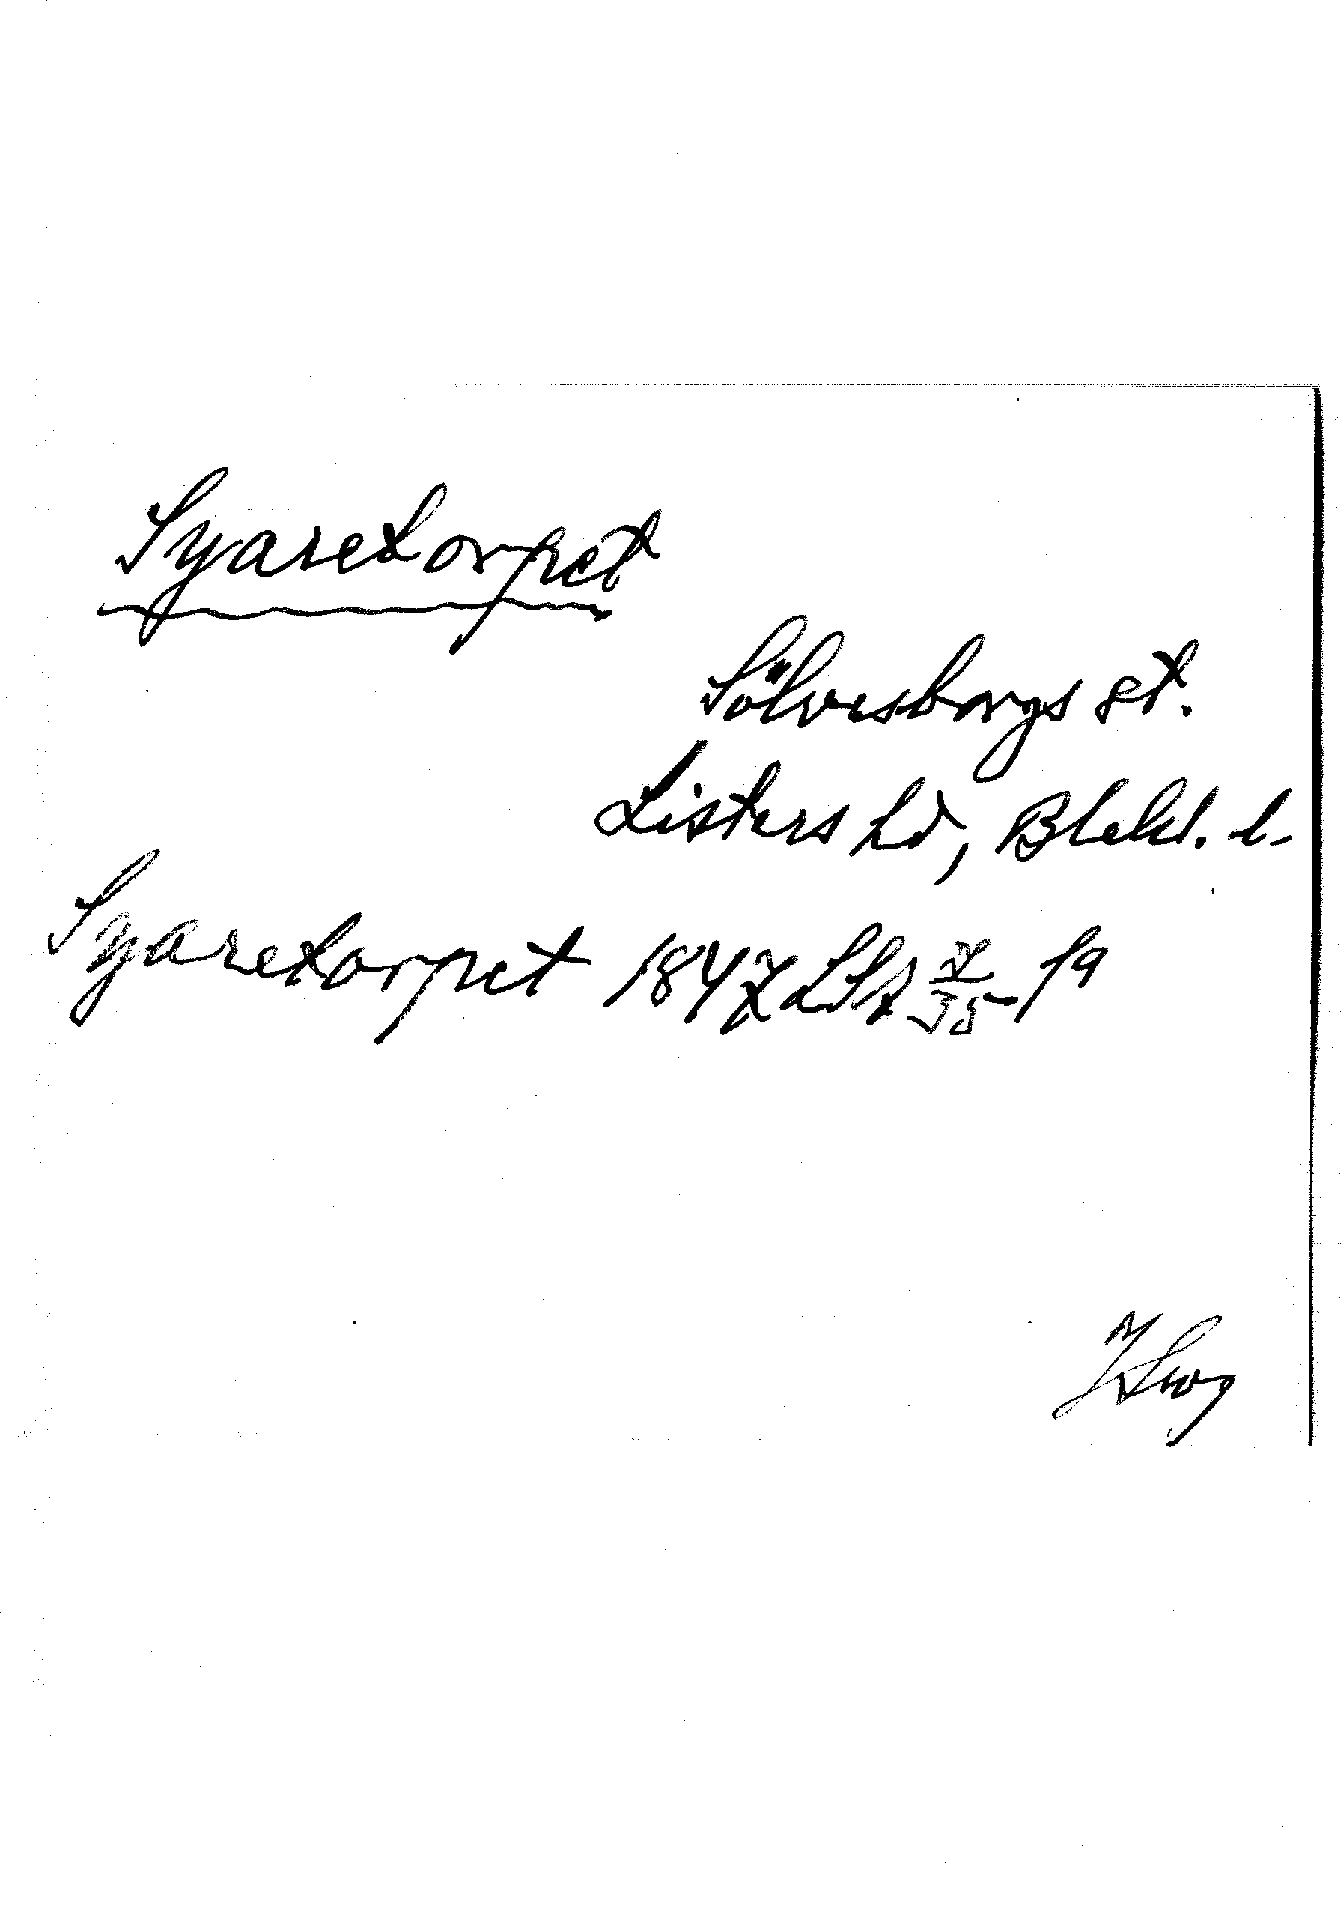 Syaretorpet
Sölvesborgs st.
Listers hd, Blek. l.
Syaretorpet 1847 LSA 35 fa